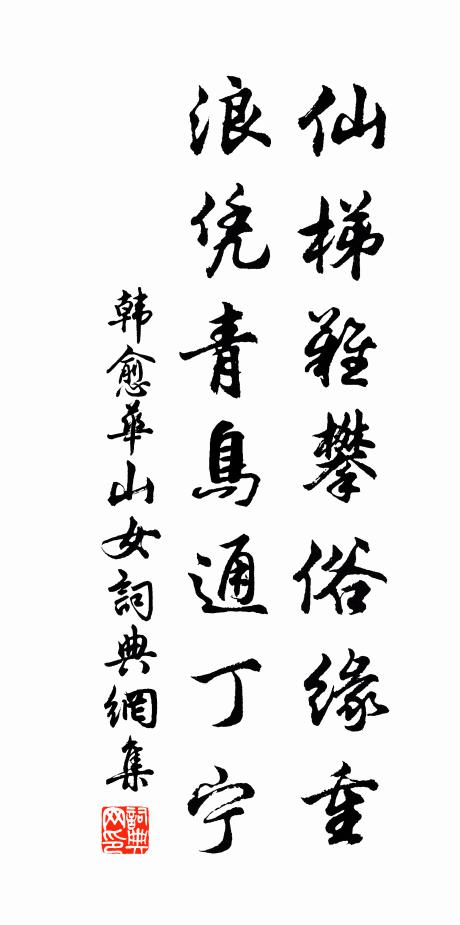 仙梯難攀俗緣重
浪凭青鳥通丁宁
韩愈華山女詞典網集
詞典
网印